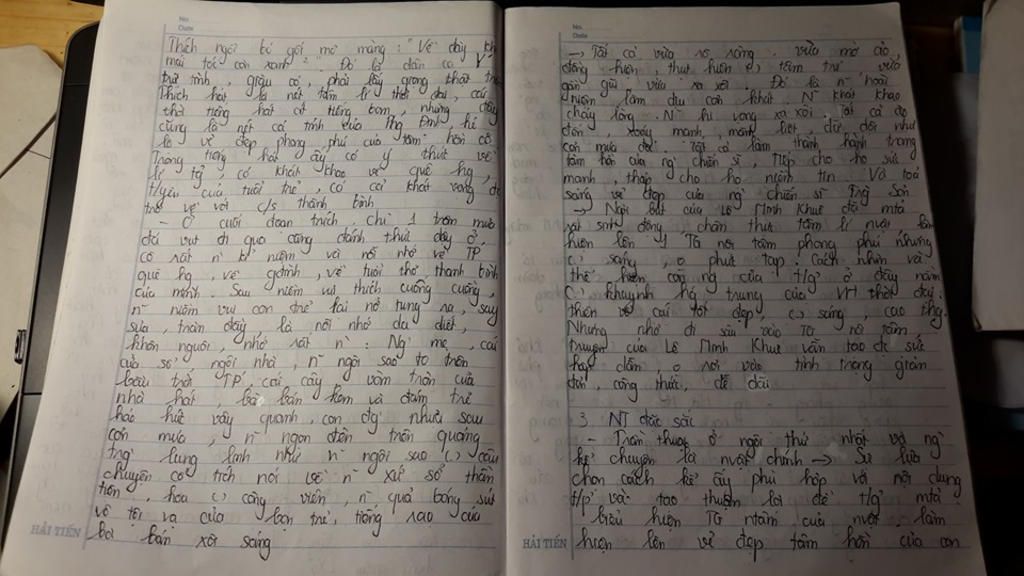 No.
Date
Thích ngồi bó gối mơ màng: "Về đây khi
mái tóc còn xanh". Đó là dân ca Ý
trữ tình, giàu có, phải lấy giọng thật trầm
Thích hát, là nét tâm lí thời đại, cái
thời tiếng hát át tiếng bom, nhưng đây
cũng là nét cá tính của PĐịnh
là vẻ đẹp phong phú của tâm hồn cô
Trong tiếng hát ấy có ý thức về
lí tg, có khát khao về quê hg,
t/yêu của tuổi trẻ, có cả khát vọng đc
trở về với c/s thanh bình
- Ở cuối đoạn trích, chỉ 1 trận mưa
đá vụt đi qua cũng đánh thức dậy ở
cô rất n~ kỉ niệm và nỗi nhớ về TP
quê hg, về gđình, về tuổi thơ thanh bình
của mình. Sau niềm vui thích cuống cuồng,
n~ niềm vui con trẻ lại nở tung ra, say
sưa, tràn đầy, là nỗi nhớ da diết,
khôn nguôi, nhớ rất n~: Ng` mẹ, cái
cửa sổ ngôi nhà, n~ ngôi sao to trên
bầu trời TP, cái cây vòm tròn của
nhà hát, bà bán kem và đám trẻ
háo hức vây quanh, con đg nhựa sau
cơn mưa, n~ ngọn đèn trên quảng
trg` lung linh như n~ ngôi sao () câu
chuyện cổ tích nói về n~ xứ sở thần
tiên, hoa () công viên, n~ quả bóng sút
vô tội vạ của bọn trẻ, tiếng rao của
bà bán xôi sáng
HẢI TIẾN
No.
Date
-> Tất cả vừa rõ ràng vừa mờ ảo,
đồng hiện, thực hiện () tâm trí vừa
gần gũi vừa xa xôi. Đó là n~ hoài
niệm làm dịu cơn khát. N~ khát khao
cháy lòng. N~ hi vọng xa xôi. Tất cả ập
đến, xoáy mạnh, mãnh liệt dữ dội như
cơn mưa đá. Tất cả làm thành hành trang
tâm hồn của ng` chiến sĩ, tiếp cho họ sức
mạnh, thắp cho họ niềm tin. Và toả
sáng vẻ đẹp của ng` chiến sĩ Trg Sơn
-> Ngòi bút của Lê Minh Khuê đã mtả
rất sinh động, chân thực tâm lí nvật làm
hiện lên 1 TG nội tâm phong phú nhưng
() sáng, o phức tạp. Cách nhìn và
thể hiện con ng của t/g ở đây nằm
() khuynh hg trung của VH thời đại,
thiên về cái tốt đẹp, () sáng, cao thg.
Nhưng nhờ đi sâu vào TG nội tâm,
truyện của Lê Minh Khuê vẫn tạo đc sức
hấp dẫn, o rơi vào tình trạng giản
đơn, công thức, dễ dãi
3. NT đặc sắc
- Trần thuật ở ngôi thứ nhất và ng`
kể chuyện là nvật chính -> Sự lựa
chọn cách kể ấy phù hợp với nội dung
t/p và tạo thuận lợi để t/g mtả
biểu hiện TG ntâm của nvật, làm
hiện lên vẻ đẹp tâm hồn của con
HẢI TIẾN